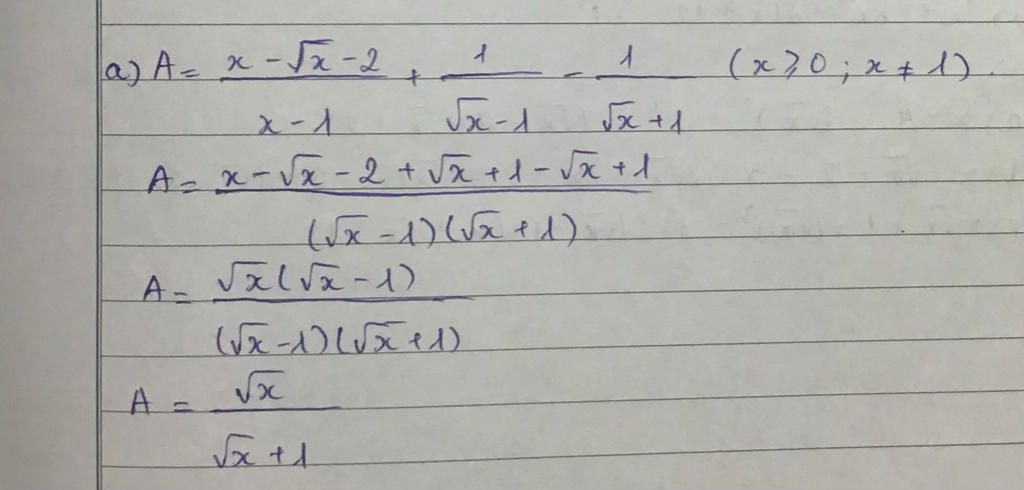 a) A = \frac{x - \sqrt{x} - 2}{x - 1} + \frac{1}{\sqrt{x} - 1} - \frac{1}{\sqrt{x} + 1} (x ⩾ 0 ; x ≠ 1).
A = \frac{x - \sqrt{x} - 2 + \sqrt{x} + 1 - \sqrt{x} + 1}{(\sqrt{x} - 1)(\sqrt{x} + 1)}
A = \frac{\sqrt{x}(\sqrt{x} - 1)}{(\sqrt{x} - 1)(\sqrt{x} + 1)}
A = \frac{\sqrt{x}}{\sqrt{x} + 1}